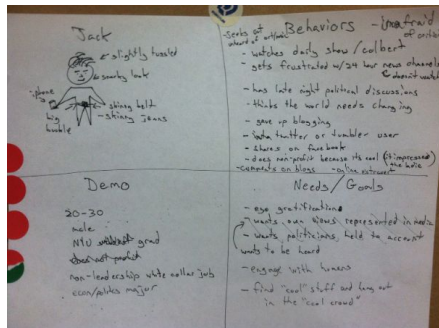 Jack
slightly tussled
snarky look
phone
big
buckle
skinny belt
skinny jeans
Behaviors - afraid
- watches daily show/colbert
- gets frustrated w/24 hour news channels
doesn't watch
- has late night political discussions
- thinks the world needs changing
- gave up blogging
twitter or tumbler user
- shares on facebook
- does non-profit because its cool (it impresses
the ladies
- comments on blogs - online extrovert
Demo
20-30
male
NYU grad
non-leadership white collar job
econ/politics major
Needs/Goals
- ego gratification
- wants own views represented in media
- wants politicians held to account
wants to be heard
- engage with humans
- find "cool" stuff and hang out
in the "cool crowd"